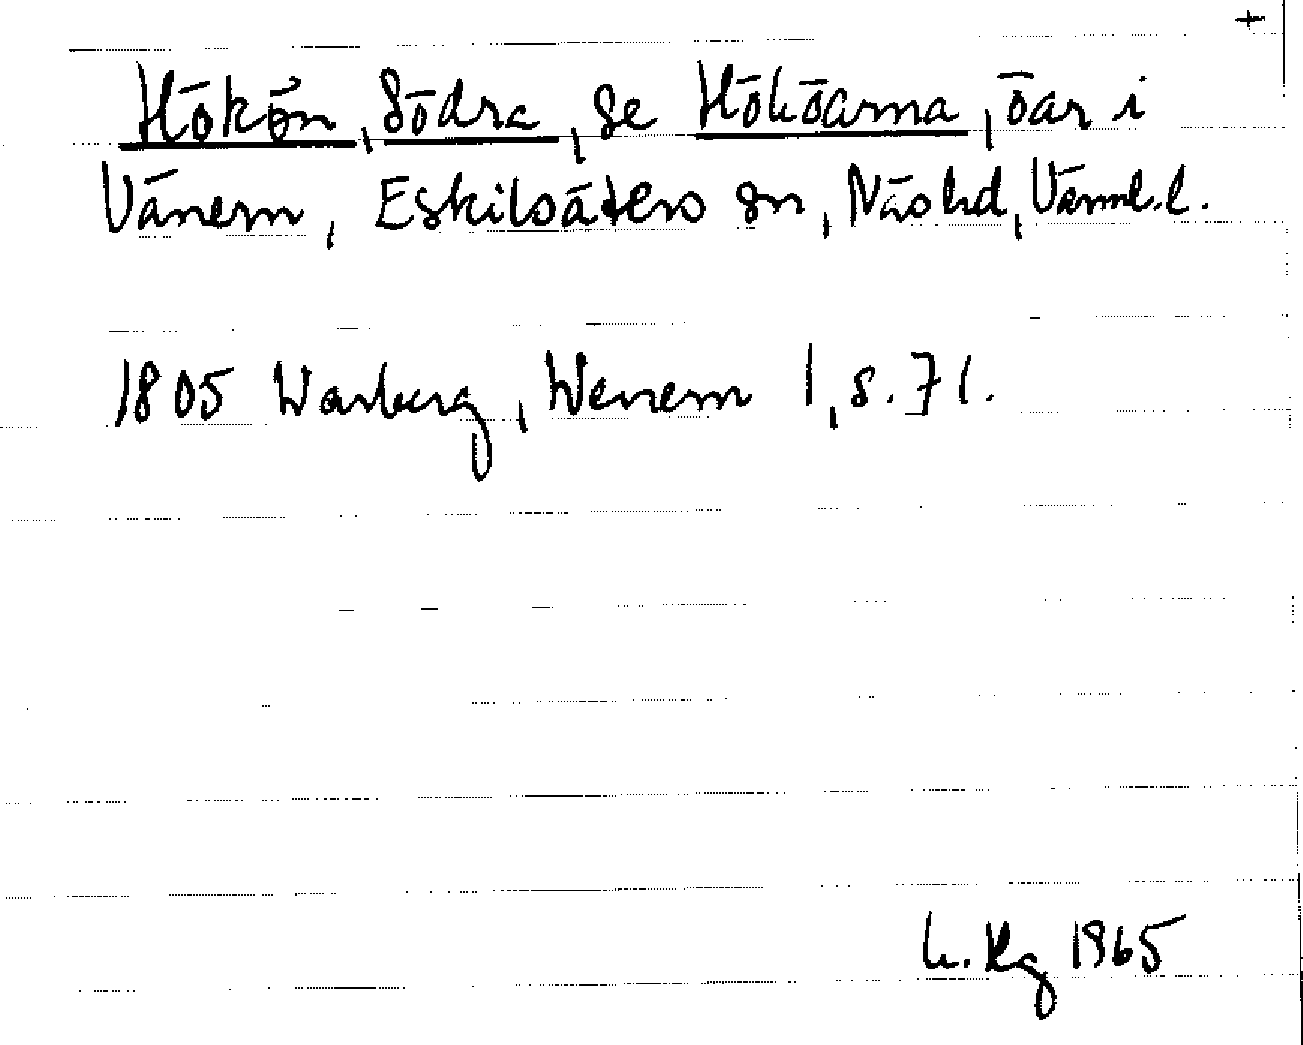 +
Hökön, Södra, se Hököarna, öar i
Vänern, Eskilsäters sn, Näs hd, Värml. l.
1805 Warberg, Wenern 1, s. 71.
L. Kg 1965